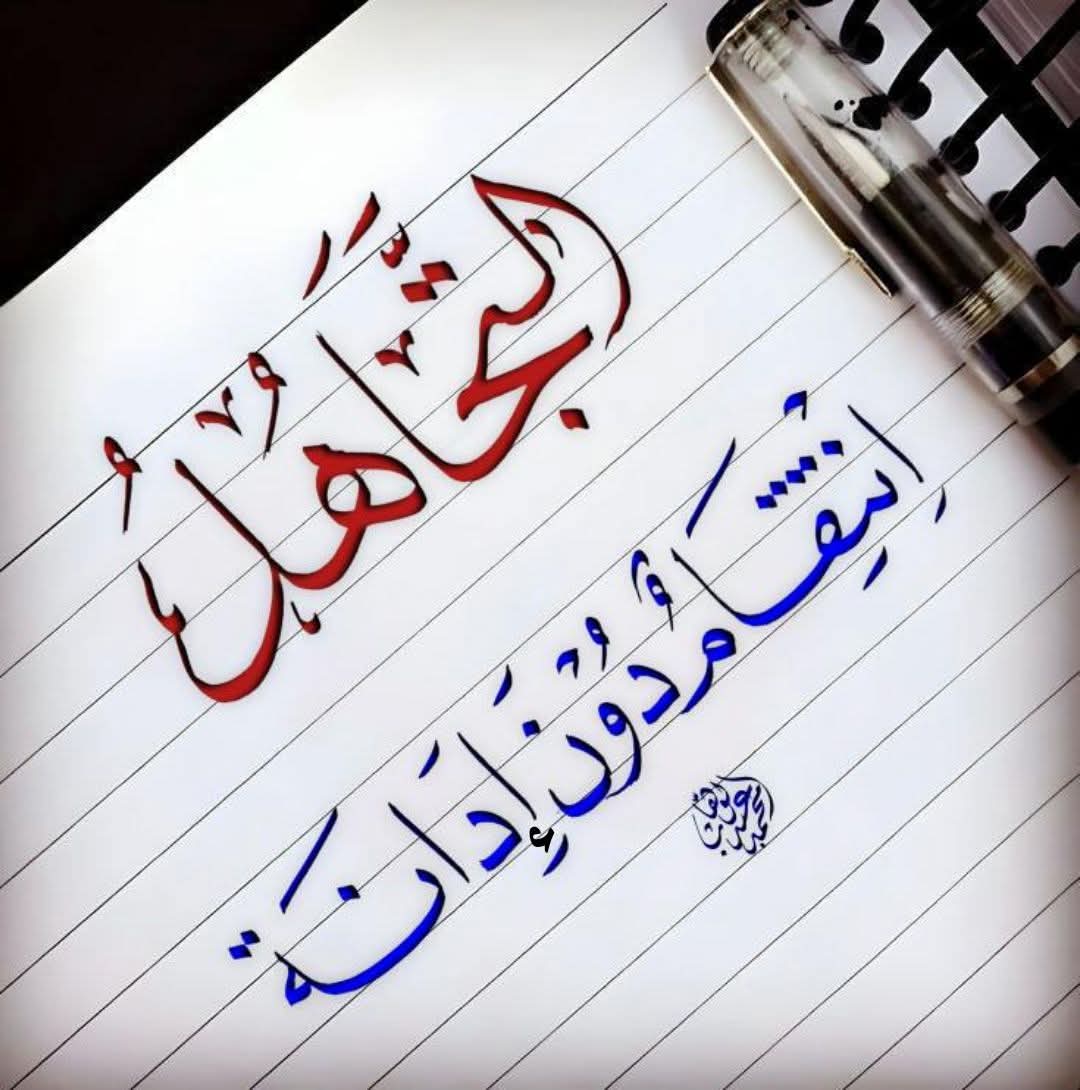 التَّجَاهُلُ
اِنْتِقَامٌ دُونَ إِدَانَة